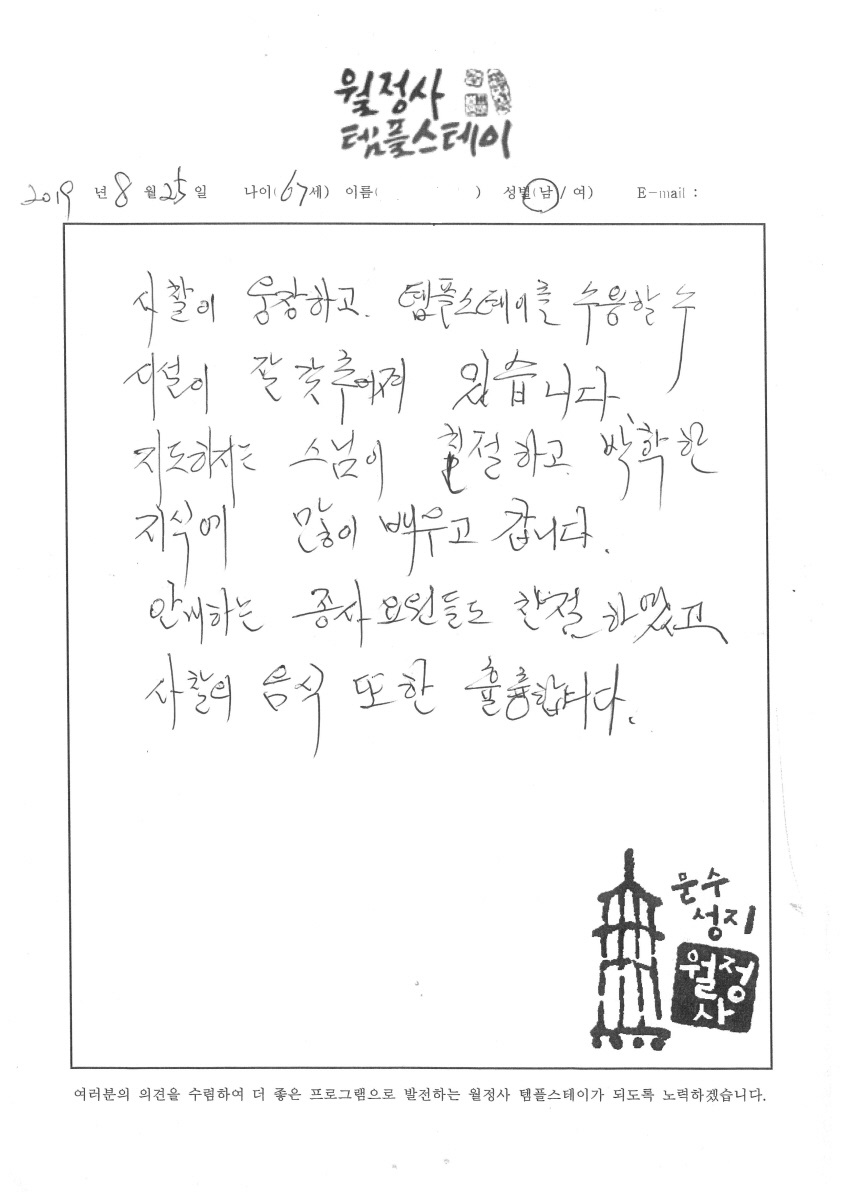 월정사
템플스테이
2019 년 8 월 25 일 나이(67세) 이름( ) 성별(남/여) E-mail :
사찰이 웅장하고. 템플스테이를 수용할 수
시설이 잘 갖추어져 있습니다
지도하시는 스님이 친절하고. 박학한
지식에 많이 배우고 갑니다.
안내하는 종사요원들도 친절하였고
사찰의 음식 또한 훌륭합니다.
문수
성지
월정
사
여러분의 의견을 수렴하여 더 좋은 프로그램으로 발전하는 월정사 템플스테이가 되도록 노력하겠습니다.